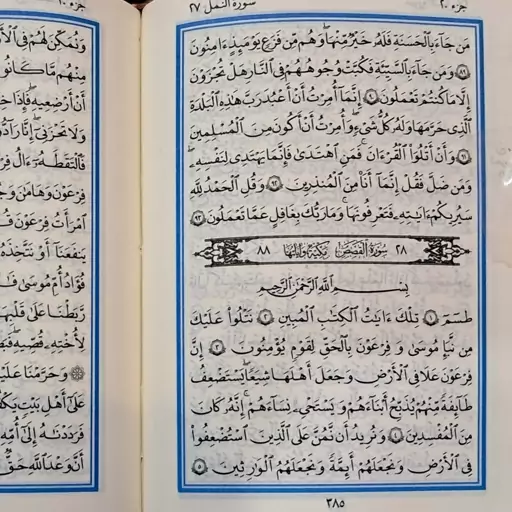 سورة النمل ٢٧
جزء ٢٠
مَن جَآءَ بِٱلْحَسَنَةِ فَلَهُۥ خَيْرٌ مِّنْهَا وَهُم مِّن فَزَعٍ يَوْمَئِذٍ ءَامِنُونَ
٨٩ وَمَن جَآءَ بِٱلسَّيِّئَةِ فَكُبَّتْ وُجُوهُهُمْ فِى ٱلنَّارِ هَلْ تُجْزَوْنَ
إِلَّا مَا كُنتُمْ تَعْمَلُونَ ٩٠ إِنَّمَآ أُمِرْتُ أَنْ أَعْبُدَ رَبَّ هَٰذِهِ ٱلْبَلْدَةِ
ٱلَّذِى حَرَّمَهَا وَلَهُۥ كُلُّ شَىْءٍ وَأُمِرْتُ أَنْ أَكُونَ مِنَ ٱلْمُسْلِمِينَ
٩١ وَأَنْ أَتْلُوَا۟ ٱلْقُرْءَانَ فَمَنِ ٱهْتَدَىٰ فَإِنَّمَا يَهْتَدِى لِنَفْسِهِۦ
وَمَن ضَلَّ فَقُلْ إِنَّمَآ أَنَا۠ مِنَ ٱلْمُنذِرِينَ ٩٢ وَقُلِ ٱلْحَمْدُ لِلَّهِ
سَيُرِيكُمْ ءَايَٰتِهِۦ فَتَعْرِفُونَهَا وَمَا رَبُّكَ بِغَٰفِلٍ عَمَّا تَعْمَلُونَ ٩٣
٢٨ سورة القصص مكية وآياتها ٨٨
بِسْمِ ٱللَّهِ ٱلرَّحْمَٰنِ ٱلرَّحِيمِ
طسٓمٓ ١ تِلْكَ ءَايَٰتُ ٱلْكِتَٰبِ ٱلْمُبِينِ ٢ نَتْلُوا۟ عَلَيْكَ
مِن نَّبَإِ مُوسَىٰ وَفِرْعَوْنَ بِٱلْحَقِّ لِقَوْمٍ يُؤْمِنُونَ ٣ إِنَّ
فِرْعَوْنَ عَلَا فِى ٱلْأَرْضِ وَجَعَلَ أَهْلَهَا شِيَعًا يَسْتَضْعِفُ
طَآئِفَةً مِّنْهُمْ يُذَبِّحُ أَبْنَآءَهُمْ وَيَسْتَحْىِۦ نِسَآءَهُمْ إِنَّهُۥ كَانَ
مِنَ ٱلْمُفْسِدِينَ ٤ وَنُرِيدُ أَن نَّمُنَّ عَلَى ٱلَّذِينَ ٱسْتُضْعِفُوا۟
فِى ٱلْأَرْضِ وَنَجْعَلَهُمْ أَئِمَّةً وَنَجْعَلَهُمُ ٱلْوَٰرِثِينَ ٥
٣٨٥
جزء ٢٠
وَنُمَكِّنَ لَهُمْ فِى
مِنْهُم مَّا كَانُوا۟
أَنْ أَرْضِعِيهِ فَإِذَا
وَلَا تَحْزَنِىٓ إِنَّا
فَٱلْتَقَطَهُۥٓ ءَالُ
فِرْعَوْنَ وَهَٰمَٰنَ
ٱمْرَأَتُ فِرْعَوْنَ
يَنفَعَنَآ أَوْ نَتَّخِذَهُۥ
فُؤَادُ أُمِّ مُوسَىٰ
رَّبَطْنَا عَلَىٰ قَلْبِهَا
لِأُخْتِهِۦ قُصِّيهِ
وَحَرَّمْنَا
عَلَىٰٓ أَهْلِ بَيْتٍ
فَرَدَدْنَٰهُ إِلَىٰٓ أُمِّهِۦ
أَنَّ وَعْدَ ٱللَّهِ حَقٌّ